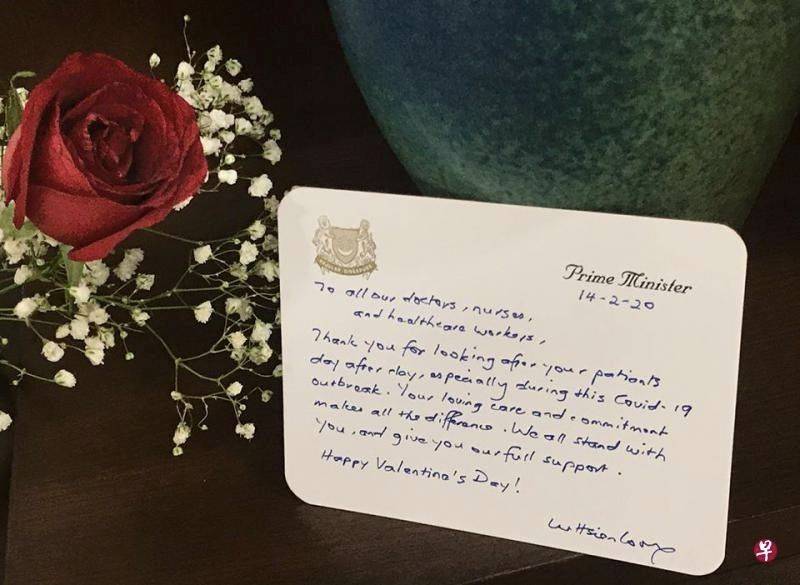 Prime Minister
14-2-20
To all our doctors, nurses,
and healthcare workers,
Thank you for looking after your patients
day after day, especially during this Covid-19
outbreak. Your loving care and commitment
makes all the difference. We all stand with
you, and give you our full support.
Happy Valentine's Day!
Lee Hsien Loong
早